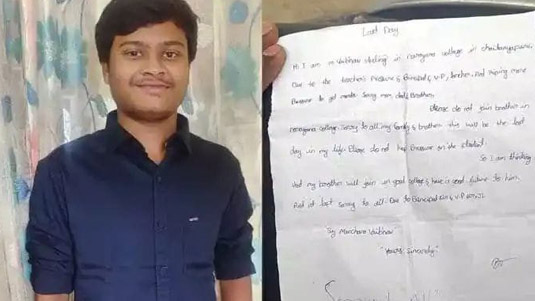 Last Day
Hi I am m Vaibhav studing in narayana college in
Due to the teacher's Pressure & Principal & V.P, teacher. And more
Pressure to get marks. Sorry mom, dad & Brother.
Please do not join brother in
narayana College. Sorry to all my family & brother this will be the last
day in my life. Please do not Pressure on the student.
So I am thinking
that my brother will join in good college & have a good future to him.
And at last sorry to all. Due to Principal &
Vaibhav
"Yours Sincerely"